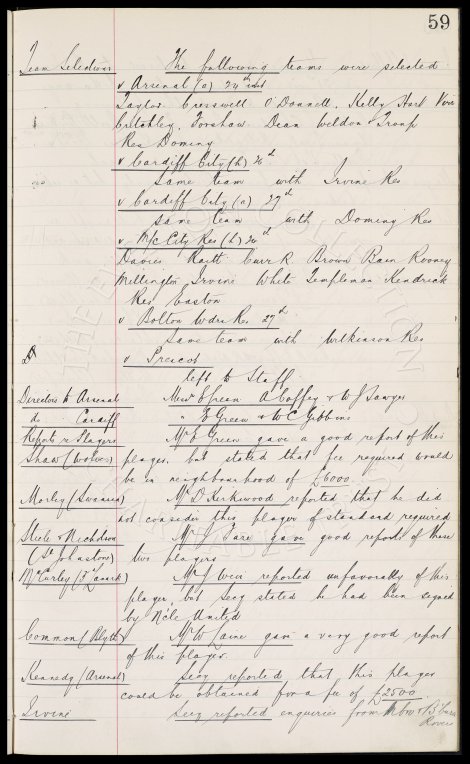 59
Team Selections The following teams were selected
v Arsenal (a) 24th inst
Taylor Cresswell O'Donnell, Kelly Hart Virr
Critchley, Forshaw Dean Weldon & Troup
Res Dominy
v Cardiff City (h) 26th
Same team with Irvine Res
v Cardiff City (a) 27th
same team with Dominy Res
v M/c City Res (h) 26th
Davies Raitt Curr R. Brown Bain Rooney
Millington Irvine White Templeman Kendrick
Res Easton
v Bolton Wdrs Res 27th
Same team with Wilkinson Res
v Prescot
left to Staff.
Directors to Arsenal Messrs E Green A Coffey & W J Sawyer
do Cardiff " E Green & W C Gibbins
Reports re Players Mr E Green gave a good report of this
Shaw (Wolves) player, but stated that fee required would
be in neighbourhood of £6000.
Morley (Swansea) Mr D Kirkwood reported that he did
not consider this player of standard required
Steele & Nicholson Mr J gave good reports of these
(St Johnstone) two players
McCurley (Lanark) Mr J reported unfavorably of this
player, but Secy stated he had been signed
by N'cle United
Common (Blyth) Mr W gave a very good report
of this player.
Kennedy (Arsenal) Secy reported that this player
could be obtained for a fee of £2500
Irvine Secy reported enquiries from & B'burn
Rovers